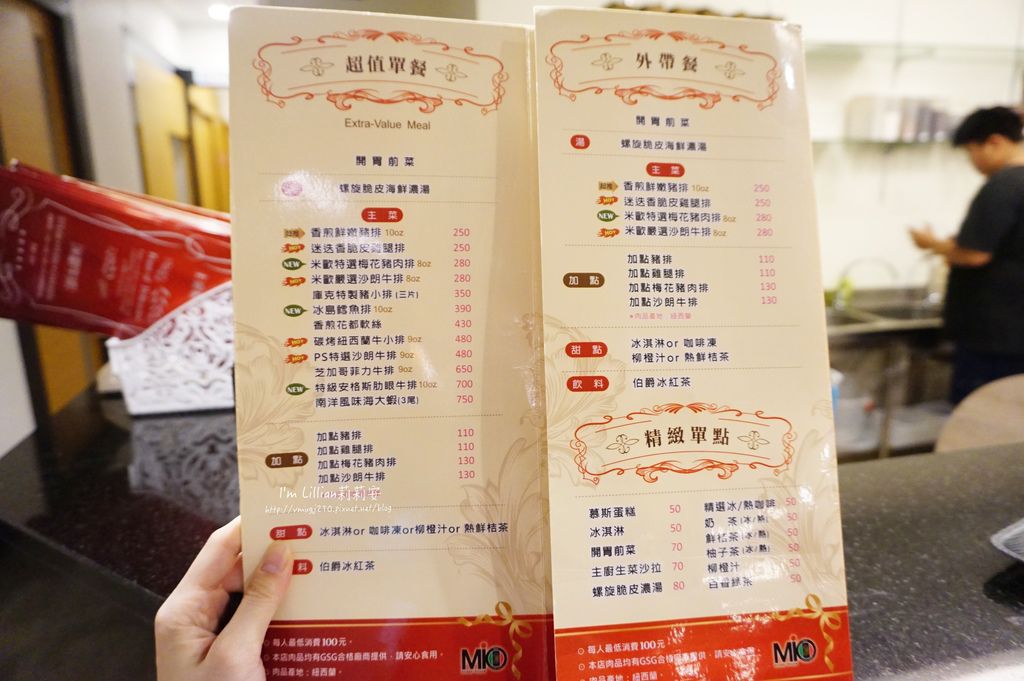 超值單餐
Extra-Value Meal
開胃前菜
螺旋脆皮海鮮濃湯
主菜
香煎鮮嫩豬排 10oz 250
HOT 迷迭香脆皮雞腿排 250
NEW 米歐特選梅花豬肉排 8oz 280
HOT 米歐嚴選沙朗牛排 8oz 280
庫克特製豬小排 (三片) 350
NEW 冰島鱈魚排 10oz 390
香煎花都軟絲 430
HOT 碳烤紐西蘭牛小排 9oz 480
HOT PS特選沙朗牛排 9oz 480
芝加哥菲力牛排 9oz 650
NEW 特級安格斯肋眼牛排 10oz 700
南洋風味海大蝦 (3尾) 750
加點
加點豬排 110
加點雞腿排 110
加點梅花豬肉排 130
加點沙朗牛排 130
I'm Lillian莉莉安
甜點 冰淇淋or 咖啡凍or柳橙汁or 熱鮮桔茶
料 伯爵冰紅茶
每人最低消費100元。
本店肉品均有GSG合格廠商提供，請安心食用。
肉品產地：紐西蘭。
MiO
外帶餐
開胃前菜
湯 螺旋脆皮海鮮濃湯
主菜
香煎鮮嫩豬排 10oz 250
HOT 迷迭香脆皮雞腿排 250
NEW 米歐特選梅花豬肉排 8oz 280
HOT 米歐嚴選沙朗牛排 8oz 280
加點
加點豬排 110
加點雞腿排 110
加點梅花豬肉排 130
加點沙朗牛排 130
*肉品產地：紐西蘭
甜點 冰淇淋or 咖啡凍
柳橙汁or 熱鮮桔茶
飲料 伯爵冰紅茶
精緻單點
慕斯蛋糕 50
冰淇淋 50
開胃前菜 70
主廚生菜沙拉 70
螺旋脆皮濃湯 80
精選冰/熱咖啡 50
奶茶 (冰/熱) 50
鮮桔茶 (冰/熱) 50
柚子茶 (冰/熱) 50
柳橙汁 50
百香綠茶 50
每人最低消費100元。
本店肉品均有GSG合格廠商提供，請安心食用。
肉品產地：紐西蘭。
MiO